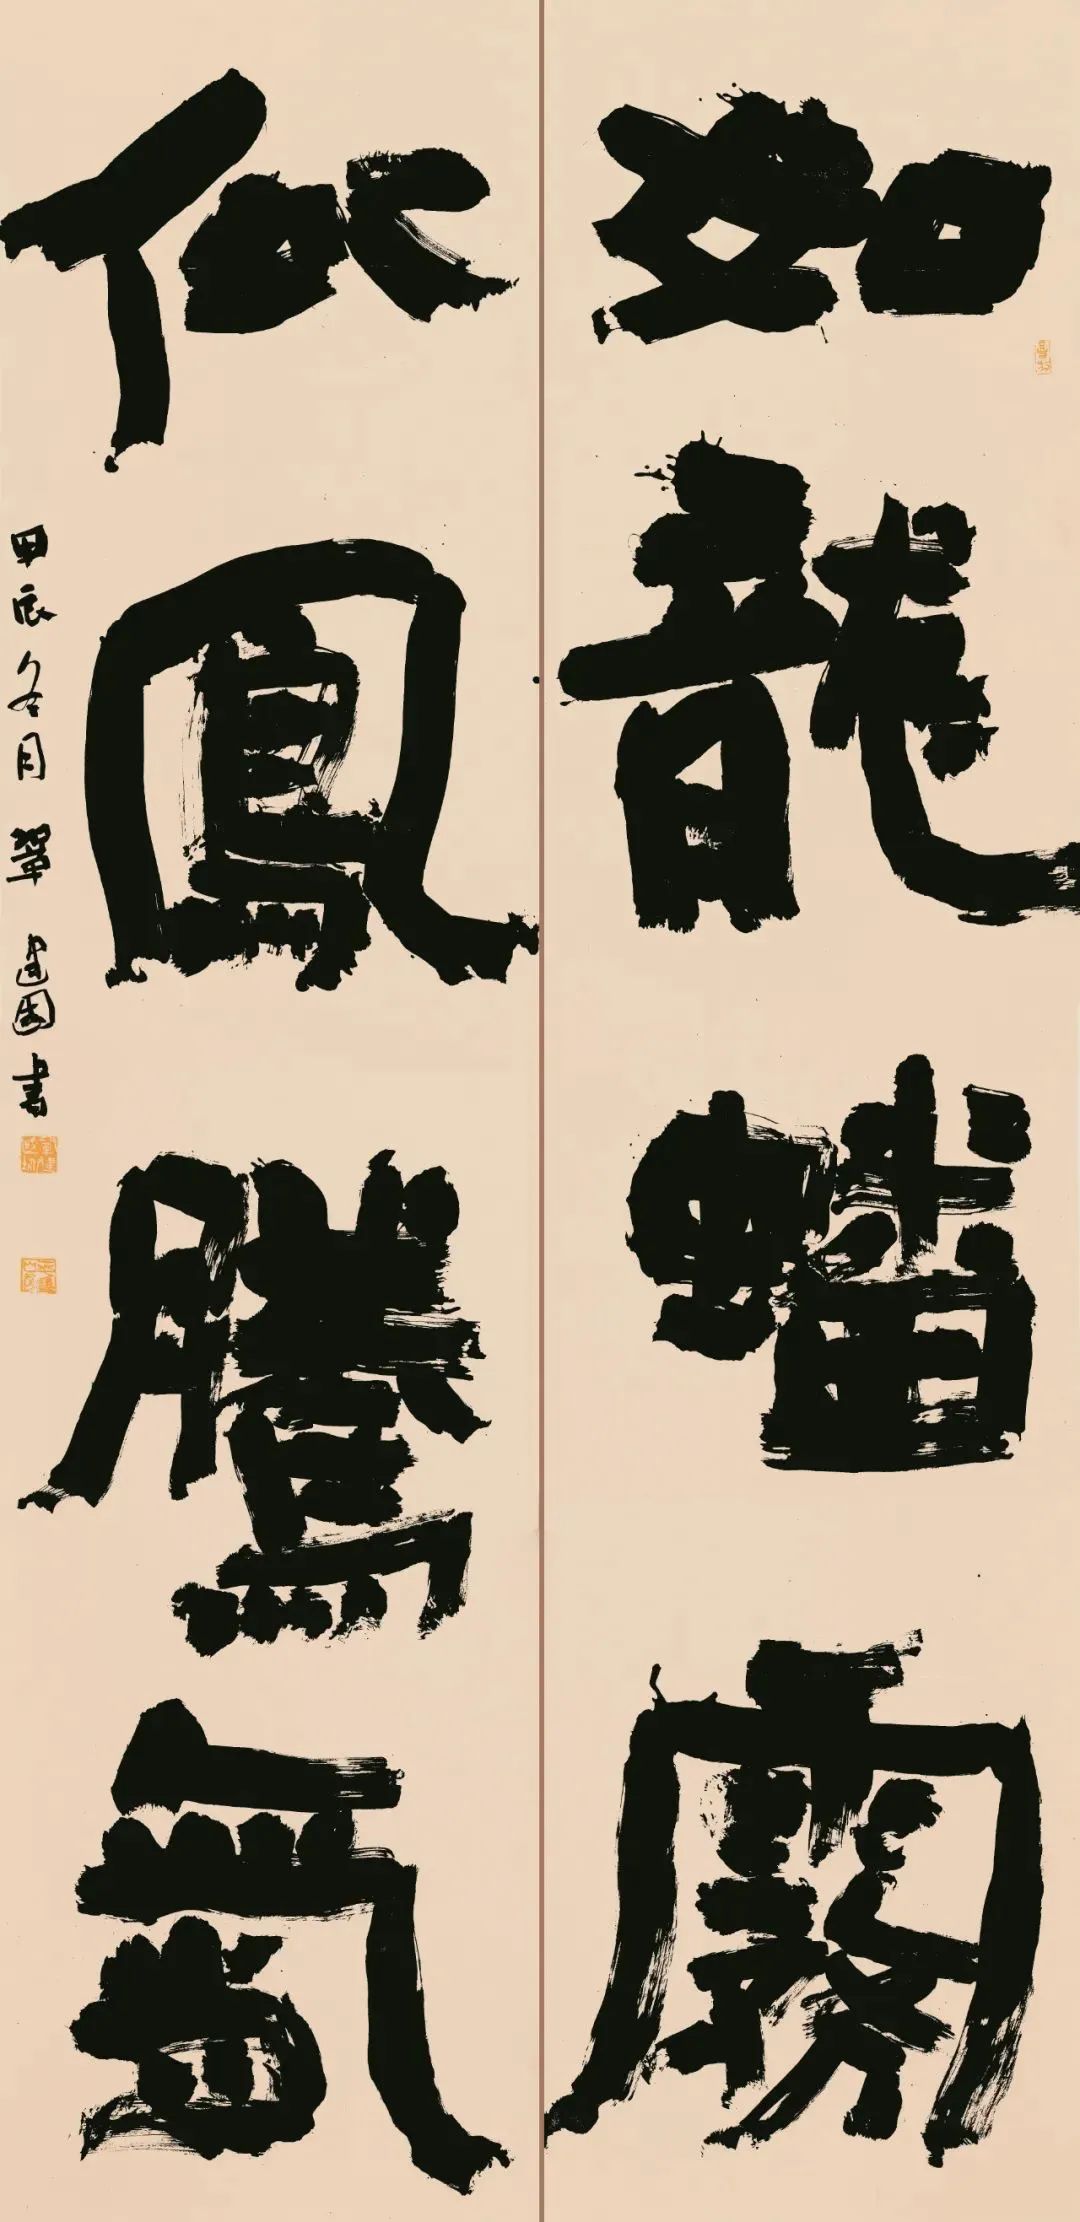 如龍蟠霧
似鳳騰
甲辰冬月 鞏建國書